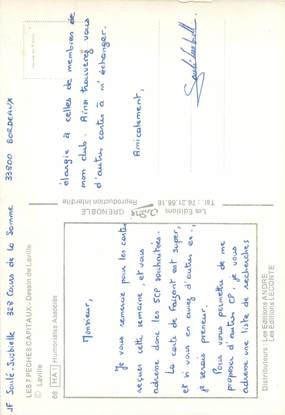 JF Soulé-Susbielle 328 Cours de la Somme 33800 BORDEAUX
LES 7 PECHES CAPITAUX - Dessin de Laville
© Laville
68 HA1 Humoristes Associés
Monsieur,
Je vous remercie pour les cartes
reçues cette semaine, et vous
adresse donc les SCP souhaitées.
La carte de Faizant est super,
et si vous en avez d'autres ex.,
je serais preneur.
Pour vous permettre de me
proposer d'autres CP, je vous
adresse une liste de recherches
élargie à celles de membres de
mon club. Ainsi trouverez vous
d'autres cartes à m'échanger.
Amicalement,
Les Éditions GRENOBLE
Reproduction Interdite
Tél. : 76.21.66.18
Distributeurs : Les Editions ANDRE
Les Editions LECONTE